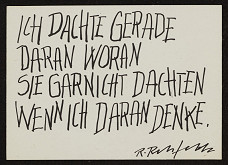 ICH DACHTE GERADE
DARAN WORAN
SIE GARNICHT DACHTEN
WENN ICH DARAN DENKE.
R. Rehfeldt